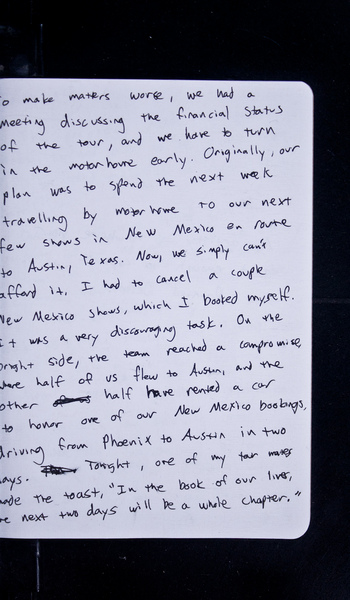 to make maters worse, we had a
meeting discussing the financial status
of the tour, and we have to turn
in the motorhome early. Originally, our
plan was to spend the next week
travelling by motorhome to our next
few shows in New Mexico en route
to Austin, Texas. Now, we simply can't
afford it. I had to cancel a couple
New Mexico shows, which I booked myself.
It was a very discouraging task. On the
bright side, the team reached a compromise,
where half of us flew to Austin, and the
other half have rented a car
to honor one of our New Mexico bookings,
driving from Phoenix to Austin in two
days. Tonight, one of my tour mates
made the toast, "In the book of our lives,
the next two days will be a whole chapter."